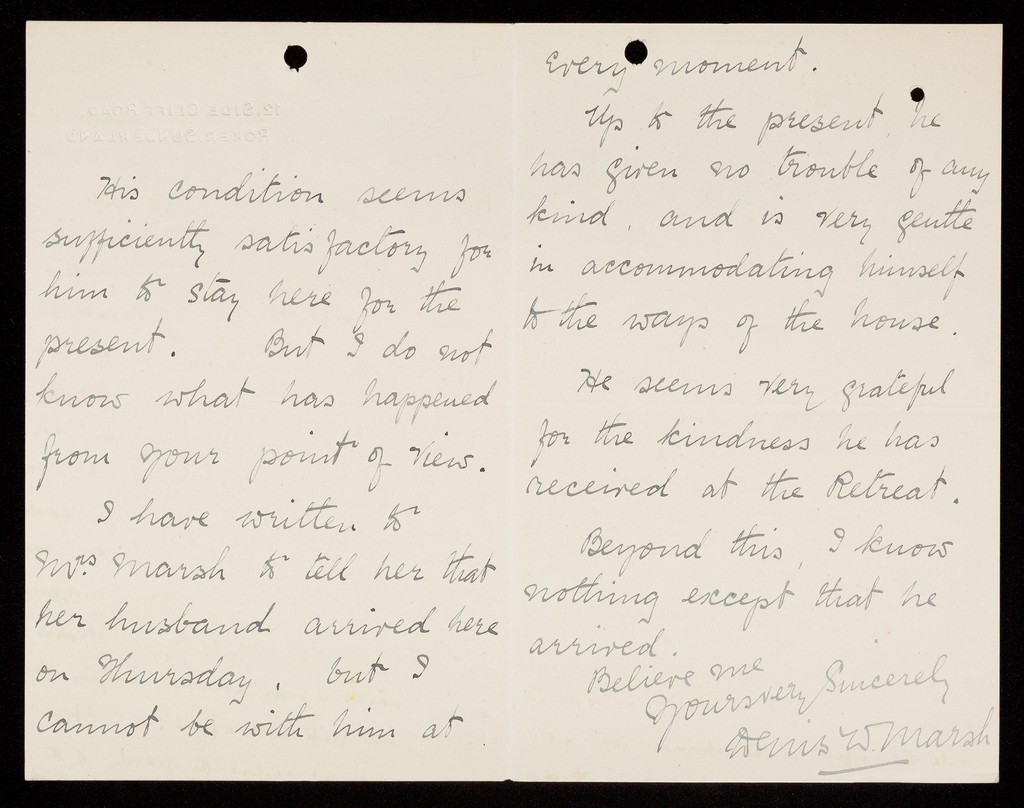 12, SIDE CLIFF ROAD,
ROKER, SUNDERLAND.
His condition seems
sufficiently satisfactory for
him to stay here for the
present. But I do not
know what has happened
from your point of view.
I have written to
Mrs. Marsh to tell her that
her husband arrived here
on Thursday, but I
cannot be with him at
every moment.
Up to the present, he
has given no trouble of any
kind, and is very gentle
in accommodating himself
to the ways of the house.
He seems very grateful
for the kindness he has
received at the Retreat.
Beyond this, I know
nothing except that he
arrived.
Believe me
Yours very Sincerely
Denis W. Marsh